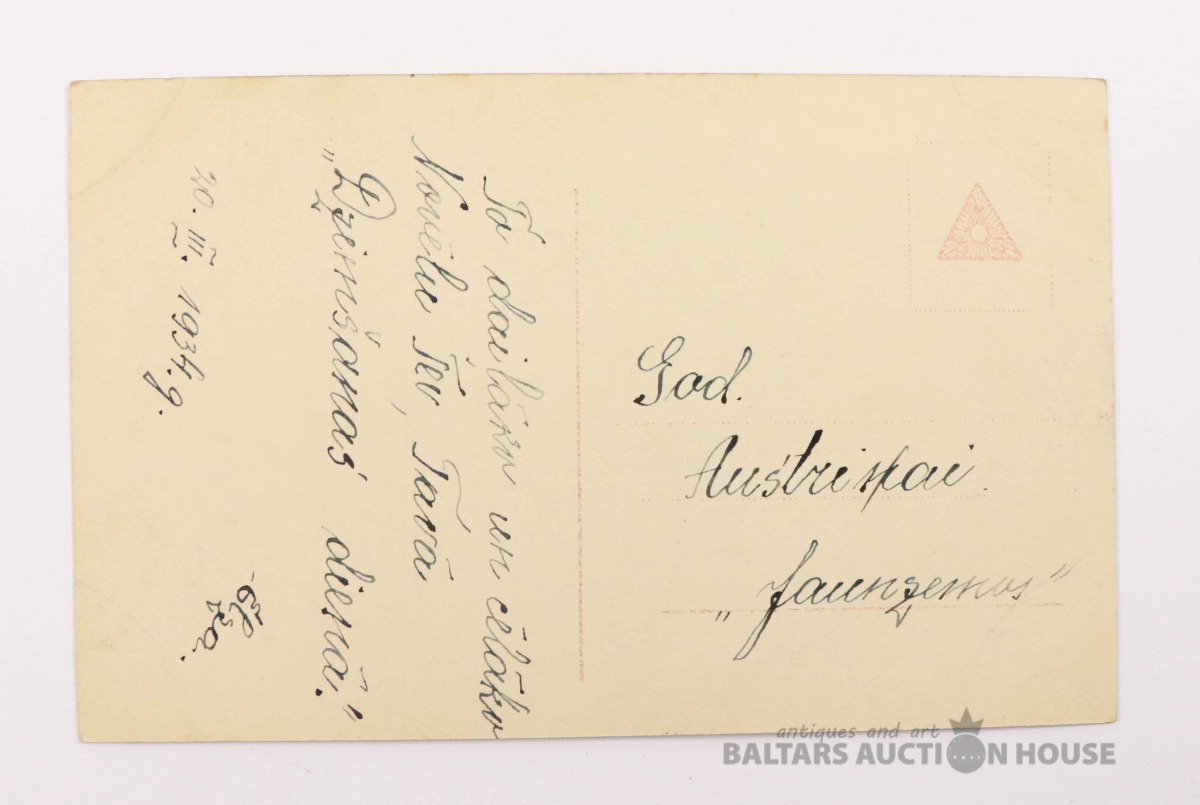 To daiļāko un cēlāko
Novēlu Tev, Tavā
„Dzimšanas dienā."
20. III. 1934. g.
God.
Austriņai
„Jaunzemos"
antiques and art
BALTARS AUCTION HOUSE